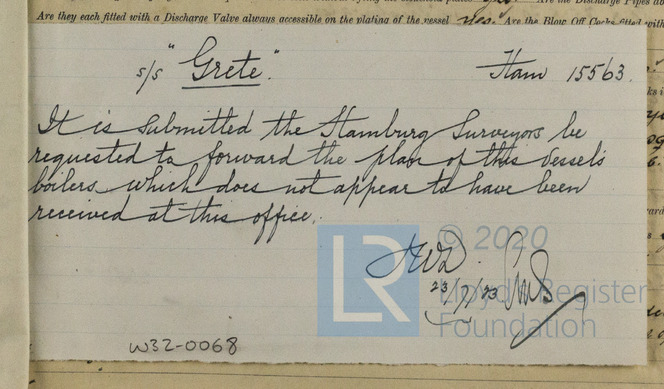 Are they each fitted with a Discharge Valve always accessible on the plating of the vessel yes. Are the Blow Off Cocks fitted with
s/s "Grete". Ham 15563.
It is submitted the Hamburg Surveyors be
requested to forward the plan of this vessel's
boilers which does not appear to have been
received at this office.
© 2020
LR
Lloyd's Register
Foundation
23/7/23
W32-0068